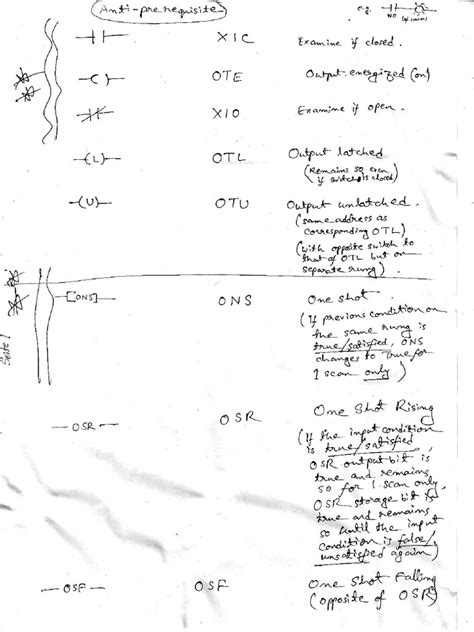 Anti-prerequisite
e.g.
NO
XIC Examine if closed.
-( )- OTE Output energized (on)
XIO Examine if open.
-(L)- OTL Output latched
(Remains so even
if switch is closed)
-(U)- OTU Output unlatched.
(same address as
corresponding OTL)
(with opposite switch to
that of OTL but on
separate rung)
-[ONS]- ONS One shot
(If previous condition on
the same rung is
true/satisfied, ONS
changes to true for
1 scan only)
- OSR - OSR One Shot Rising
(If the input condition
is true/satisfied
OSR output bit is
true and remains
so for 1 scan only.
OSR storage bit is
true and remains
so until the input
condition is false/
unsatisfied again)
- OSF - OSF One Shot Falling
(opposite of OSR)